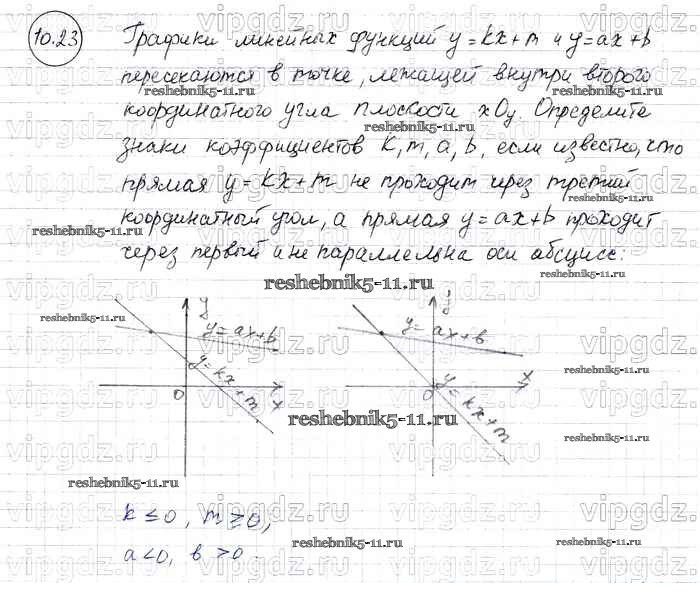 10.23
Графики линейных функций y=kx+m и y=ax+b
пересекаются в точке, лежащей внутри второго
координатного угла плоскости xOy. Определите
знаки коэффициентов k, m, a, b, если известно, что
прямая y=kx+m не проходит через третий
координатный угол, а прямая y=ax+b проходит
через первый и не параллельна оси абсцисс:
y
y=ax+b
y=kx+m
0
x
y
y=ax+b
y=kx+m
0
x
k≤0, m≥0,
a<0, b>0
vipgdz.ru
reshebnik5-11.ru